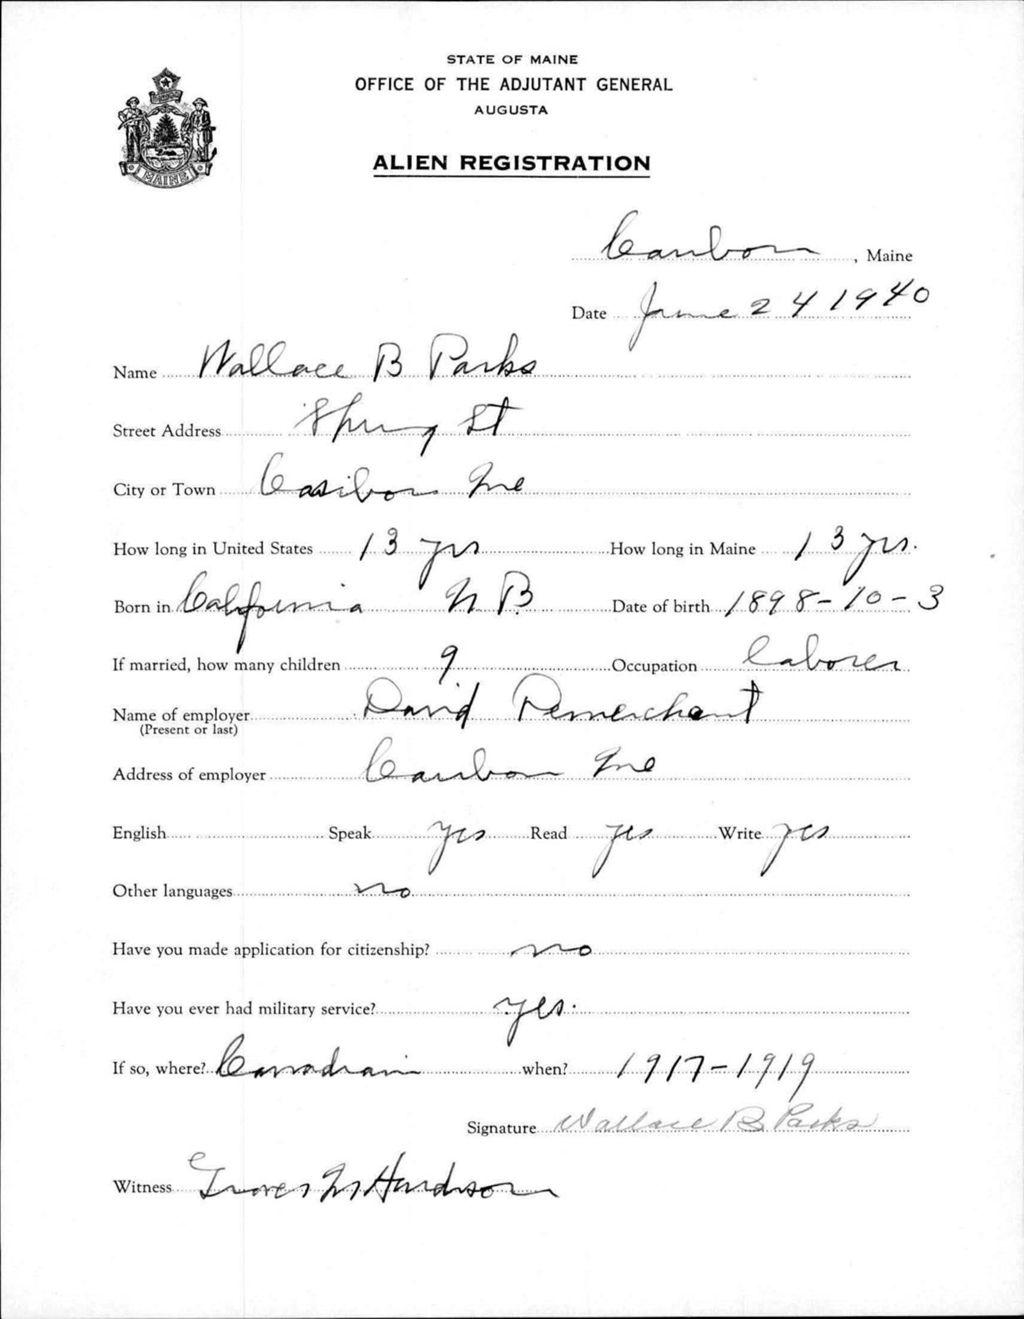 STATE OF MAINE
OFFICE OF THE ADJUTANT GENERAL
AUGUSTA
MAINE
ALIEN REGISTRATION
Caribou, Maine
Date June 24 1940
Name Wallace B Parks
Street Address Spring St
City or Town Caribou Me
How long in United States 13 yrs How long in Maine 13 yrs.
Born in California N B Date of birth 1898-10-3
If married, how many children 9 Occupation laborer
Name of employer David Pemerchant
(Present or last)
Address of employer Caribou Me
English Speak yes Read yes Write yes
Other languages no
Have you made application for citizenship? no
Have you ever had military service? yes.
If so, where? Canadian when? 1917-1919
Signature Wallace B Parks
Witness Hardison